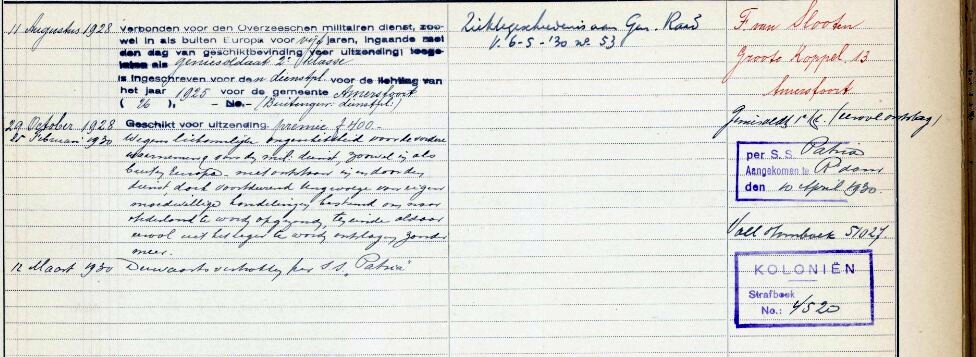 11 Augustus 1928 Verbonden voor den Overzeeschen militairen dienst, zoo-
wel in als buiten Europa voor vijf jaren, ingaande met
den dag van geschiktbevinding voor uitzending: toege-
laten als geniesoldaat 2e klasse
is ingeschreven voor den dienstpl. voor de lichting van
het jaar 1925 voor de gemeente Amersfoort
( 26 ), - No. - (Buitengew. dienstpl.)
29 October 1928 Geschikt voor uitzending. premie f 400.-
25 Februari 1930 Wegens lichamelijke ongeschiktheid voor de verdere
waarneming van den mil. dienst, zoowel in als
buiten Europa - niet ontstaan in en door den
dienst doch voortdurend tengevolge van eigen
moedwillige handelingen bestemd om naar
Nederland te worden opgezonden, teneinde aldaar
uit het leger te worden ontslagen zonder
meer.
12 Maart 1930 Derwaarts vertrokken per S.S. "Patria"
Ziektegeschiedenis aan Gen. Raad
v. 6-5-'30 no 53
F. van Slooten
Groote Koppel 13
Amersfoort
per S.S. Patria
Aangekomen te Rdam
den 10 April 1930.
Voll. Stamboek 51027.
KOLONIËN
Strafboek
No.: 4520